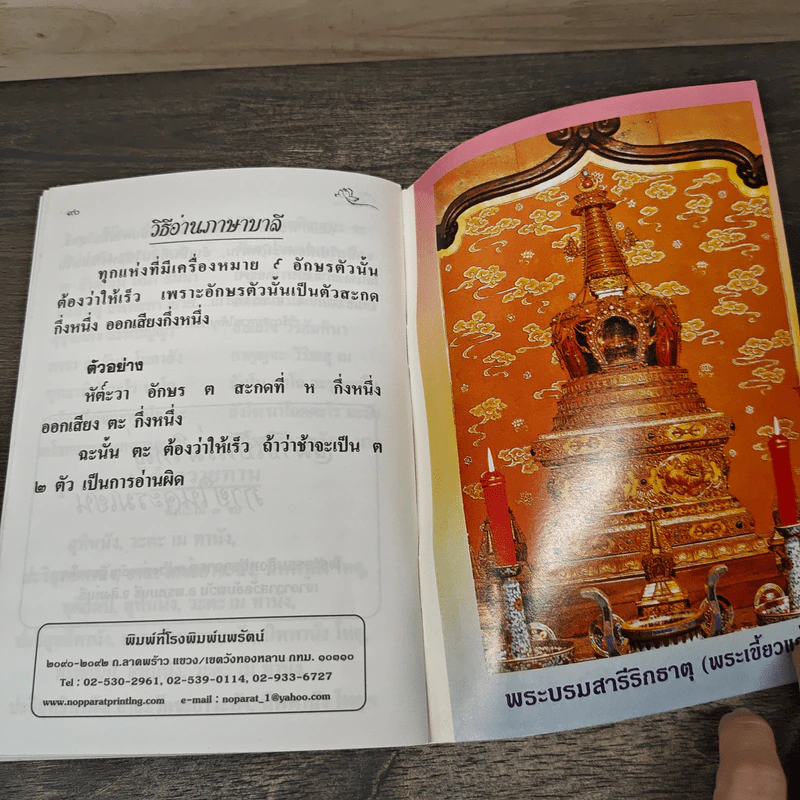 ๙๖
วิธีอ่านภาษาบาลี
ทุกแห่งที่มีเครื่องหมาย ์ อักษรตัวนั้น
ต้องว่าให้เร็ว เพราะอักษรตัวนั้นเป็นตัวสะกด
กึ่งหนึ่ง ออกเสียงกึ่งหนึ่ง
ตัวอย่าง
หัต์ะวา อักษร ต สะกดที่ ห กึ่งหนึ่ง
ออกเสียง ตะ กึ่งหนึ่ง
ฉะนั้น ตะ ต้องว่าให้เร็ว ถ้าว่าช้าจะเป็น ต
๒ ตัว เป็นการอ่านผิด
พิมพ์ที่โรงพิมพ์นพรัตน์
๒๐๙๐-๒๐๙๒ ถ.ลาดพร้าว แขวง/เขตวังทองหลาง กทม. ๑๐๓๑๐
Tel : 02-530-2961, 02-539-0114, 02-933-6727
www.nopparatprinting.com e-mail : noparat_1@yahoo.com
พระบรมสารีริกธาตุ (พระเขี้ยวแก้